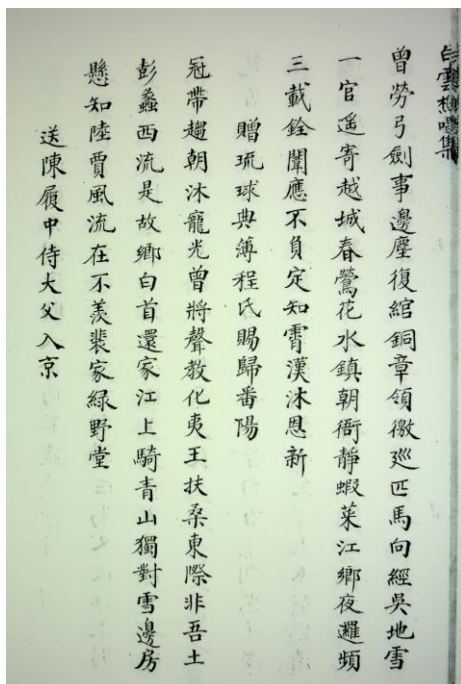 白雲樵唱集
曾勞弓劍事邊塵復綰銅章領徼廵匹馬向經吳地雪
一官遥寄越城春鶯花水鎮朝衙靜蝦菜江鄉夜邏頻
三載銓闈應不負定知霄漢沐恩新
贈琉球典簿程氏賜歸番陽
冠帶趨朝沐寵光曾將聲教化夷王扶桑東際非吾土
彭蠡西流是故鄉白首還家江上騎青山獨對雪邊房
懸知陸賈風流在不羨裴家緑野堂
送陳履中侍大父入京